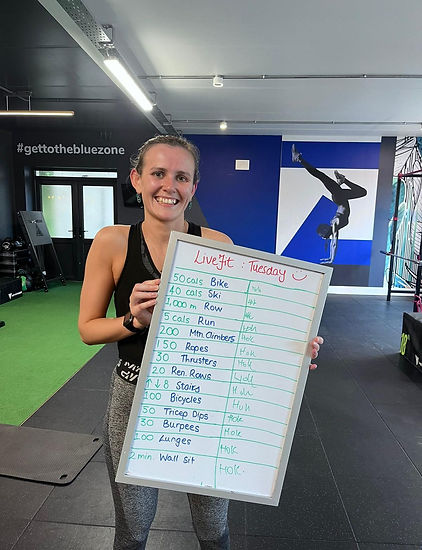 #gettothebluezone
LiveFit : Tuesday
50 cals Bike
40 cals Ski
1,000 m Row
5 cals Run
200 Mtn. Climbers HOK
150 Ropes HOK
30 Thrusters HOK
20 Ren. Rows
↑↓ 8 Stairs
100 Bicycles
50 Tricep Dips HOK
30 Burpees HOK
100 Lunges HOK
2 min Wall Sit HOK